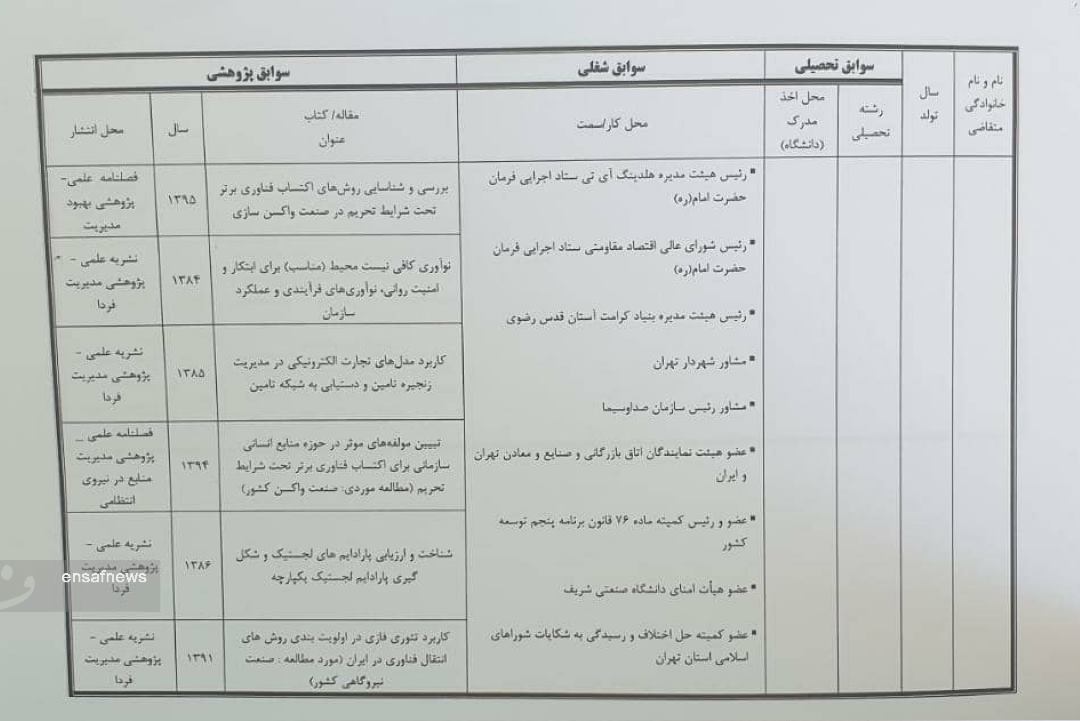 نام و نام
خانوادگی
متقاضی
سال
تولد
سوابق تحصیلی
رشته
تحصیلی
محل اخذ
مدرک
(دانشگاه)
سوابق شغلی
محل کار/سمت
سوابق پژوهشی
مقاله/ کتاب
عنوان
سال
محل انتشار
▪ رئیس هیئت مدیره هلدینگ آی تی ستاد اجرایی فرمان
حضرت امام(ره)
▪ رئیس شورای عالی اقتصاد مقاومتی ستاد اجرایی فرمان
حضرت امام(ره)
▪ رئیس هیئت مدیره بنیاد کرامت آستان قدس رضوی
▪ مشاور شهردار تهران
▪ مشاور رئیس سازمان صداوسیما
▪ عضو هیئت نمایندگان اتاق بازرگانی و صنایع و معادن تهران
و ایران
▪ عضو و رئیس کمیته ماده ۷۶ قانون برنامه پنجم توسعه
کشور
▪ عضو هیأت امنای دانشگاه صنعتی شریف
▪ عضو کمیته حل اختلاف و رسیدگی به شکایات شوراهای
اسلامی استان تهران
بررسی و شناسایی روش‌های اکتساب فناوری برتر
تحت شرایط تحریم در صنعت واکسن سازی
۱۳۹۵
فصلنامه علمی-
پژوهشی بهبود
مدیریت
نوآوری کافی نیست محیط (مناسب) برای ابتکار و
امنیت روانی، نوآوری‌های فرآیندی و عملکرد
سازمان
۱۳۸۴
نشریه علمی -
پژوهشی مدیریت
فردا
کاربرد مدل‌های تجارت الکترونیکی در مدیریت
زنجیره تامین و دستیابی به شبکه تامین
۱۳۸۵
نشریه علمی -
پژوهشی مدیریت
فردا
تبیین مولفه‌های موثر در حوزه منابع انسانی
سازمانی برای اکتساب فناوری برتر تحت شرایط
تحریم (مطالعه موردی: صنعت واکسن کشور)
۱۳۹۴
فصلنامه علمی _
پژوهشی مدیریت
منابع در نیروی
انتظامی
شناخت و ارزیابی پارادایم های لجستیک و شکل
گیری پارادایم لجستیک یکپارچه
۱۳۸۶
نشریه علمی -
پژوهشی مدیریت
فردا
کاربرد تئوری فازی در اولویت بندی روش های
انتقال فناوری در ایران (مورد مطالعه : صنعت
نیروگاهی کشور)
۱۳۹۱
نشریه علمی -
پژوهشی مدیریت
فردا
ensafnews